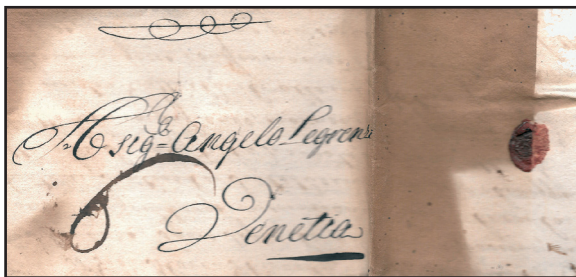 Sig.r Angelo Legrenzi
Venetia